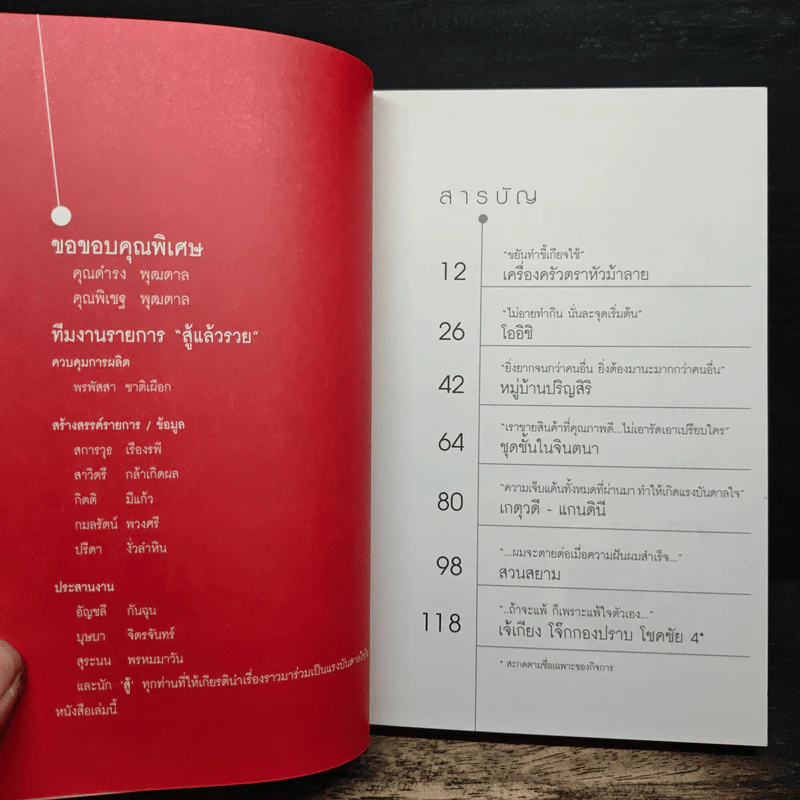 ขอขอบคุณพิเศษ
คุณดำรง พุฒตาล
คุณพิเชฐ พุฒตาล
ทีมงานรายการ "สู้แล้วรวย"
ควบคุมการผลิต
พรพัสสา ชาติเผือก
สร้างสรรค์รายการ / ข้อมูล
สการวุธ เรืองรพี
สาวิตรี กล้าเกิดผล
กิตติ มีแก้ว
กมลรัตน์ พวงศรี
ปรีดา งั่วลำหิน
ประสานงาน
อัญชลี กันฉุน
บุษบา จิตรจันทร์
สุระนน พรหมมาวัน
และนัก 'สู้' ทุกท่านที่ให้เกียรตินำเรื่องราวมาร่วมเป็นแรงบันดาลใจใน
หนังสือเล่มนี้
สารบัญ
12 "ขยันทำขี้เกียจใช้"
เครื่องครัวตราหัวม้าลาย
26 "ไม่อายทำกิน นั่นละจุดเริ่มต้น"
โออิชิ
42 "ยิ่งยากจนกว่าคนอื่น ยิ่งต้องมานะมากกว่าคนอื่น"
หมู่บ้านปริญสิริ
64 "เราขายสินค้าที่คุณภาพดี...ไม่เอารัดเอาเปรียบใคร"
ชุดชั้นในจินตนา
80 "ความเจ็บแค้นทั้งหมดที่ผ่านมา ทำให้เกิดแรงบันดาลใจ"
เกตุวดี - แกนดินี
98 "...ผมจะตายต่อเมื่อความฝันผมสำเร็จ..."
สวนสยาม
118 "..ถ้าจะแพ้ ก็เพราะแพ้ใจตัวเอง..."
เจ้เกียง โจ๊กกองปราบ โชคชัย 4*
* สะกดตามชื่อเฉพาะของกิจการ